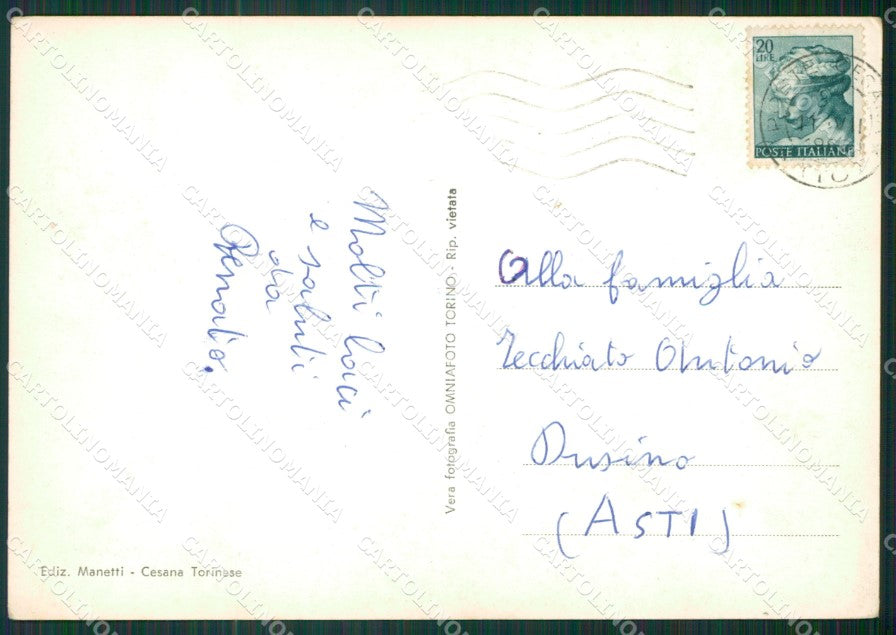 Molti baci
e saluti
da
Renato.
Vera fotografia OMNIAFOTO TORINO - Rip. vietata
20
LIRE
POSTE ITALIANE
Alla famiglia
Zecchiato Antonio
Dusino
(ASTI)
Ediz. Manetti - Cesana Torinese
CARTOLINOMANIA